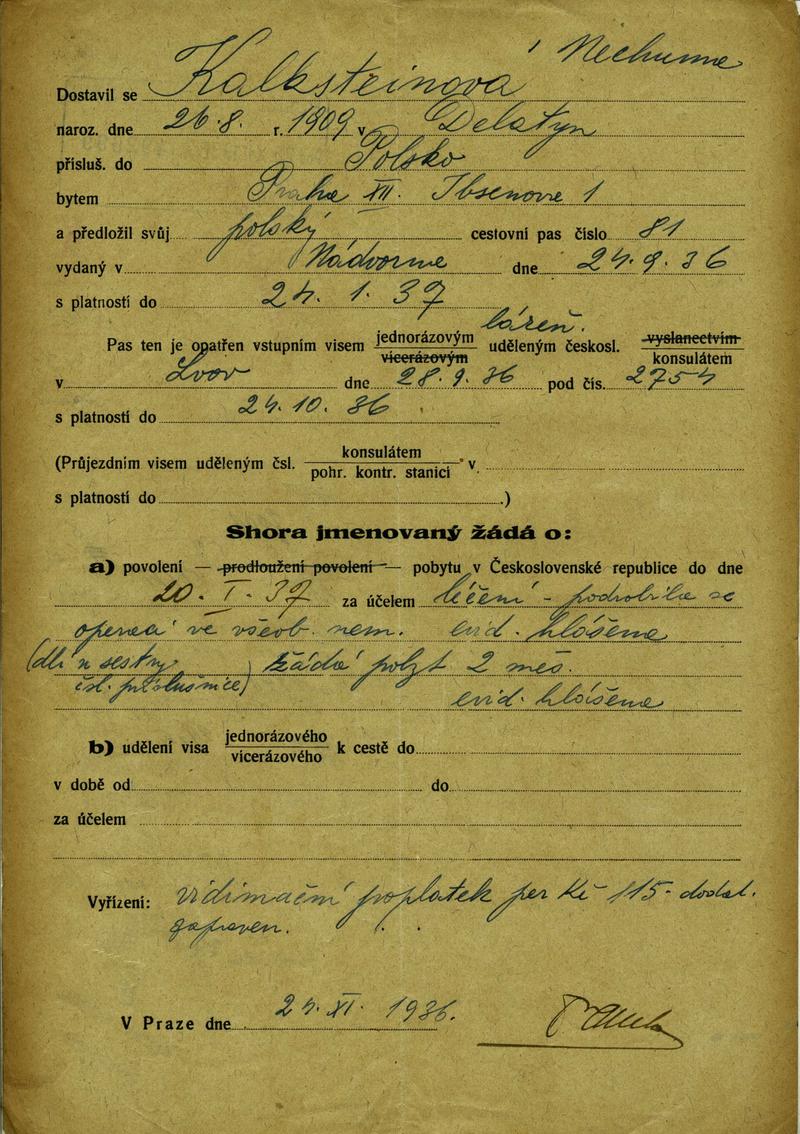 Nechume
Dostavil se Kalksteinová
naroz. dne 26.8. r. 1909 v Delatyn
přísluš. do Polsko
bytem Praha XII. Ibsenova 1
a předložil svůj polský cestovní pas číslo 81
vydaný v Nádvorme dne 24.9.36
s platností do 24.1.37
lázeň.
Pas ten je opatřen vstupním visem jednorázovým vícerázovým uděleným českosl. vyslanectvím konsulátem
v Lvov dne 28.9.36 pod čís. 2754
s platností do 24.10.36
(Průjezdním visem uděleným čsl. konsulátem pohr. kontr. stanicí v
s platností do )
Shora jmenovaný žádá o:
a) povolení — prodloužení povolení — pobytu v Československé republice do dne
20.I.37 za účelem léčení - podrobila se
operaci ve všeob. nem. evid. hlášena
(dlí u sestry žádá pobyt 2 měs.
čsl. příslušnice) evid. hlášena
b) udělení visa jednorázového vícerázového k cestě do
v době od do
za účelem
Vyřízení: vidimační poplatek per Kč 115.- dodat.
zapraven.
V Praze dne 24.XI.1936.